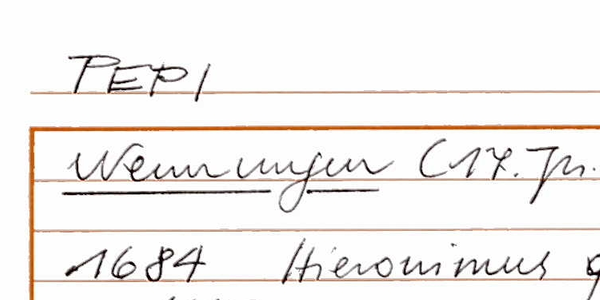 PEPI
Wennungen (17. Jh.
1684 Hieronimus